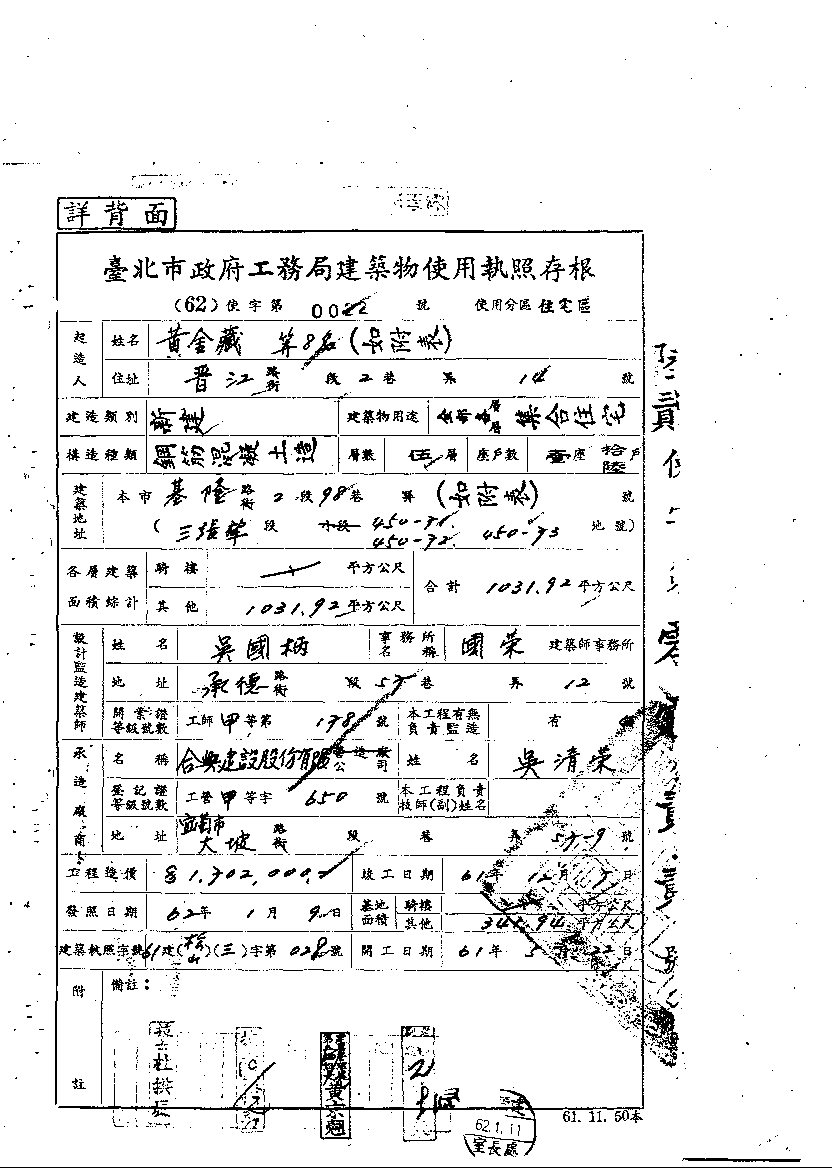 詳背面
臺北市政府工務局建築物使用執照存根
(62)使字第 0022 號 使用分區 住宅區
起造人 姓名 黃金藏 等8名(如附表)
住址 晋江路街 段 2 巷 弄 14 號
建造類別 新建 建築物用途 全部各層 集合住宅
構造種類 鋼筋混凝土造 層數 伍 層 座戶數 壹座 拾陸戶
建築地址 本市 基隆 路街 2 段 98 巷 弄 (如附表) 號
(三張犁 段 小段 450-71. 450-72. 450-73 地號)
各層建築面積綜計 騎樓 平方公尺 合計 1031.92 平方公尺
其他 1031.92 平方公尺
設計監造建築師 姓名 吳國柄 事務所名稱 國榮 建築師事務所
地址 承德 路街 段 57 巷 弄 12 號
開業證等級號數 工師 甲 等第 178 號 本工程有無負責監造 有
承造廠商 名稱 合興建設股份有限公司 姓名 吳清榮
登記證等級號數 工管 甲 等字 650 號 本工程負責技師(副)姓名
地址 宜蘭市 大坡 路街 段 巷 弄 57-9 號
工程造價 1,302,000 竣工日期 61年 12月 日
發照日期 62年 1月 9日 基地面積 騎樓 平方公尺
其他 345.94 平方公尺
建築執照字號 61建(松山)(三)字第 028 號 開工日期 61年 5月 22日
附註 備註:
黃宗翹
62.1.11
室長處
61. 11. 50本